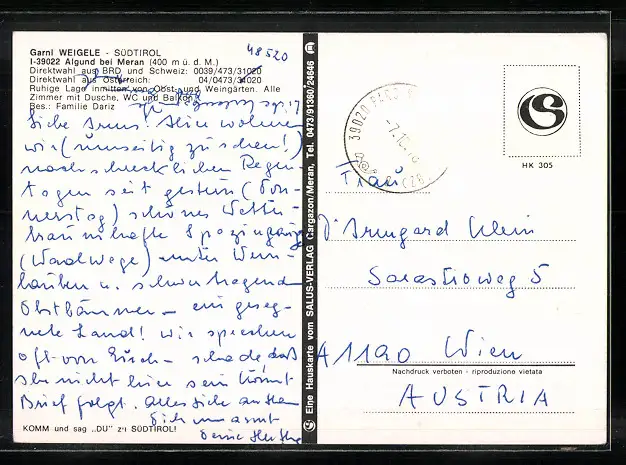 Garni WEIGELE - SÜDTIROL
I-39022 Algund bei Meran (400 m ü. d. M.)
Direktwahl aus BRD und Schweiz: 0039/473/31020
Direktwahl aus Österreich: 04/0473/31020
Ruhige Lage inmitten von Obst- und Weingärten. Alle
Zimmer mit Dusche, WC und Balkon.
Bes.: Familie Dariz
48520
Liebe Irms! Hier wohnen
wir (umseitig zu sehen!)
nach schrecklichen Regen-
tagen seit gestern (Don-
nerstag) schönes Wetter
traumhafte Spaziergänge
(Waalwege) unter Wein-
lauben u. schwer tragenden
Obstbäumen – ein geseg-
netes Land! Wir sprechen
oft von Euch – schade daß
sie nicht hier sein könnt
Brief folgt. Alles Liebe
Dich umarmt
Deine
KOMM und sag „DU" zu SÜDTIROL!
Eine Hauskarte vom SALUS-VERLAG Gargazon/Meran, Tel. 0473/91360/24646
39020
(BZ)
HK 305
Frau
Dr Irmgard Klein
Sarastroweg 5
A 1190 Wien
Nachdruck verboten - riproduzione vietata
AUSTRIA